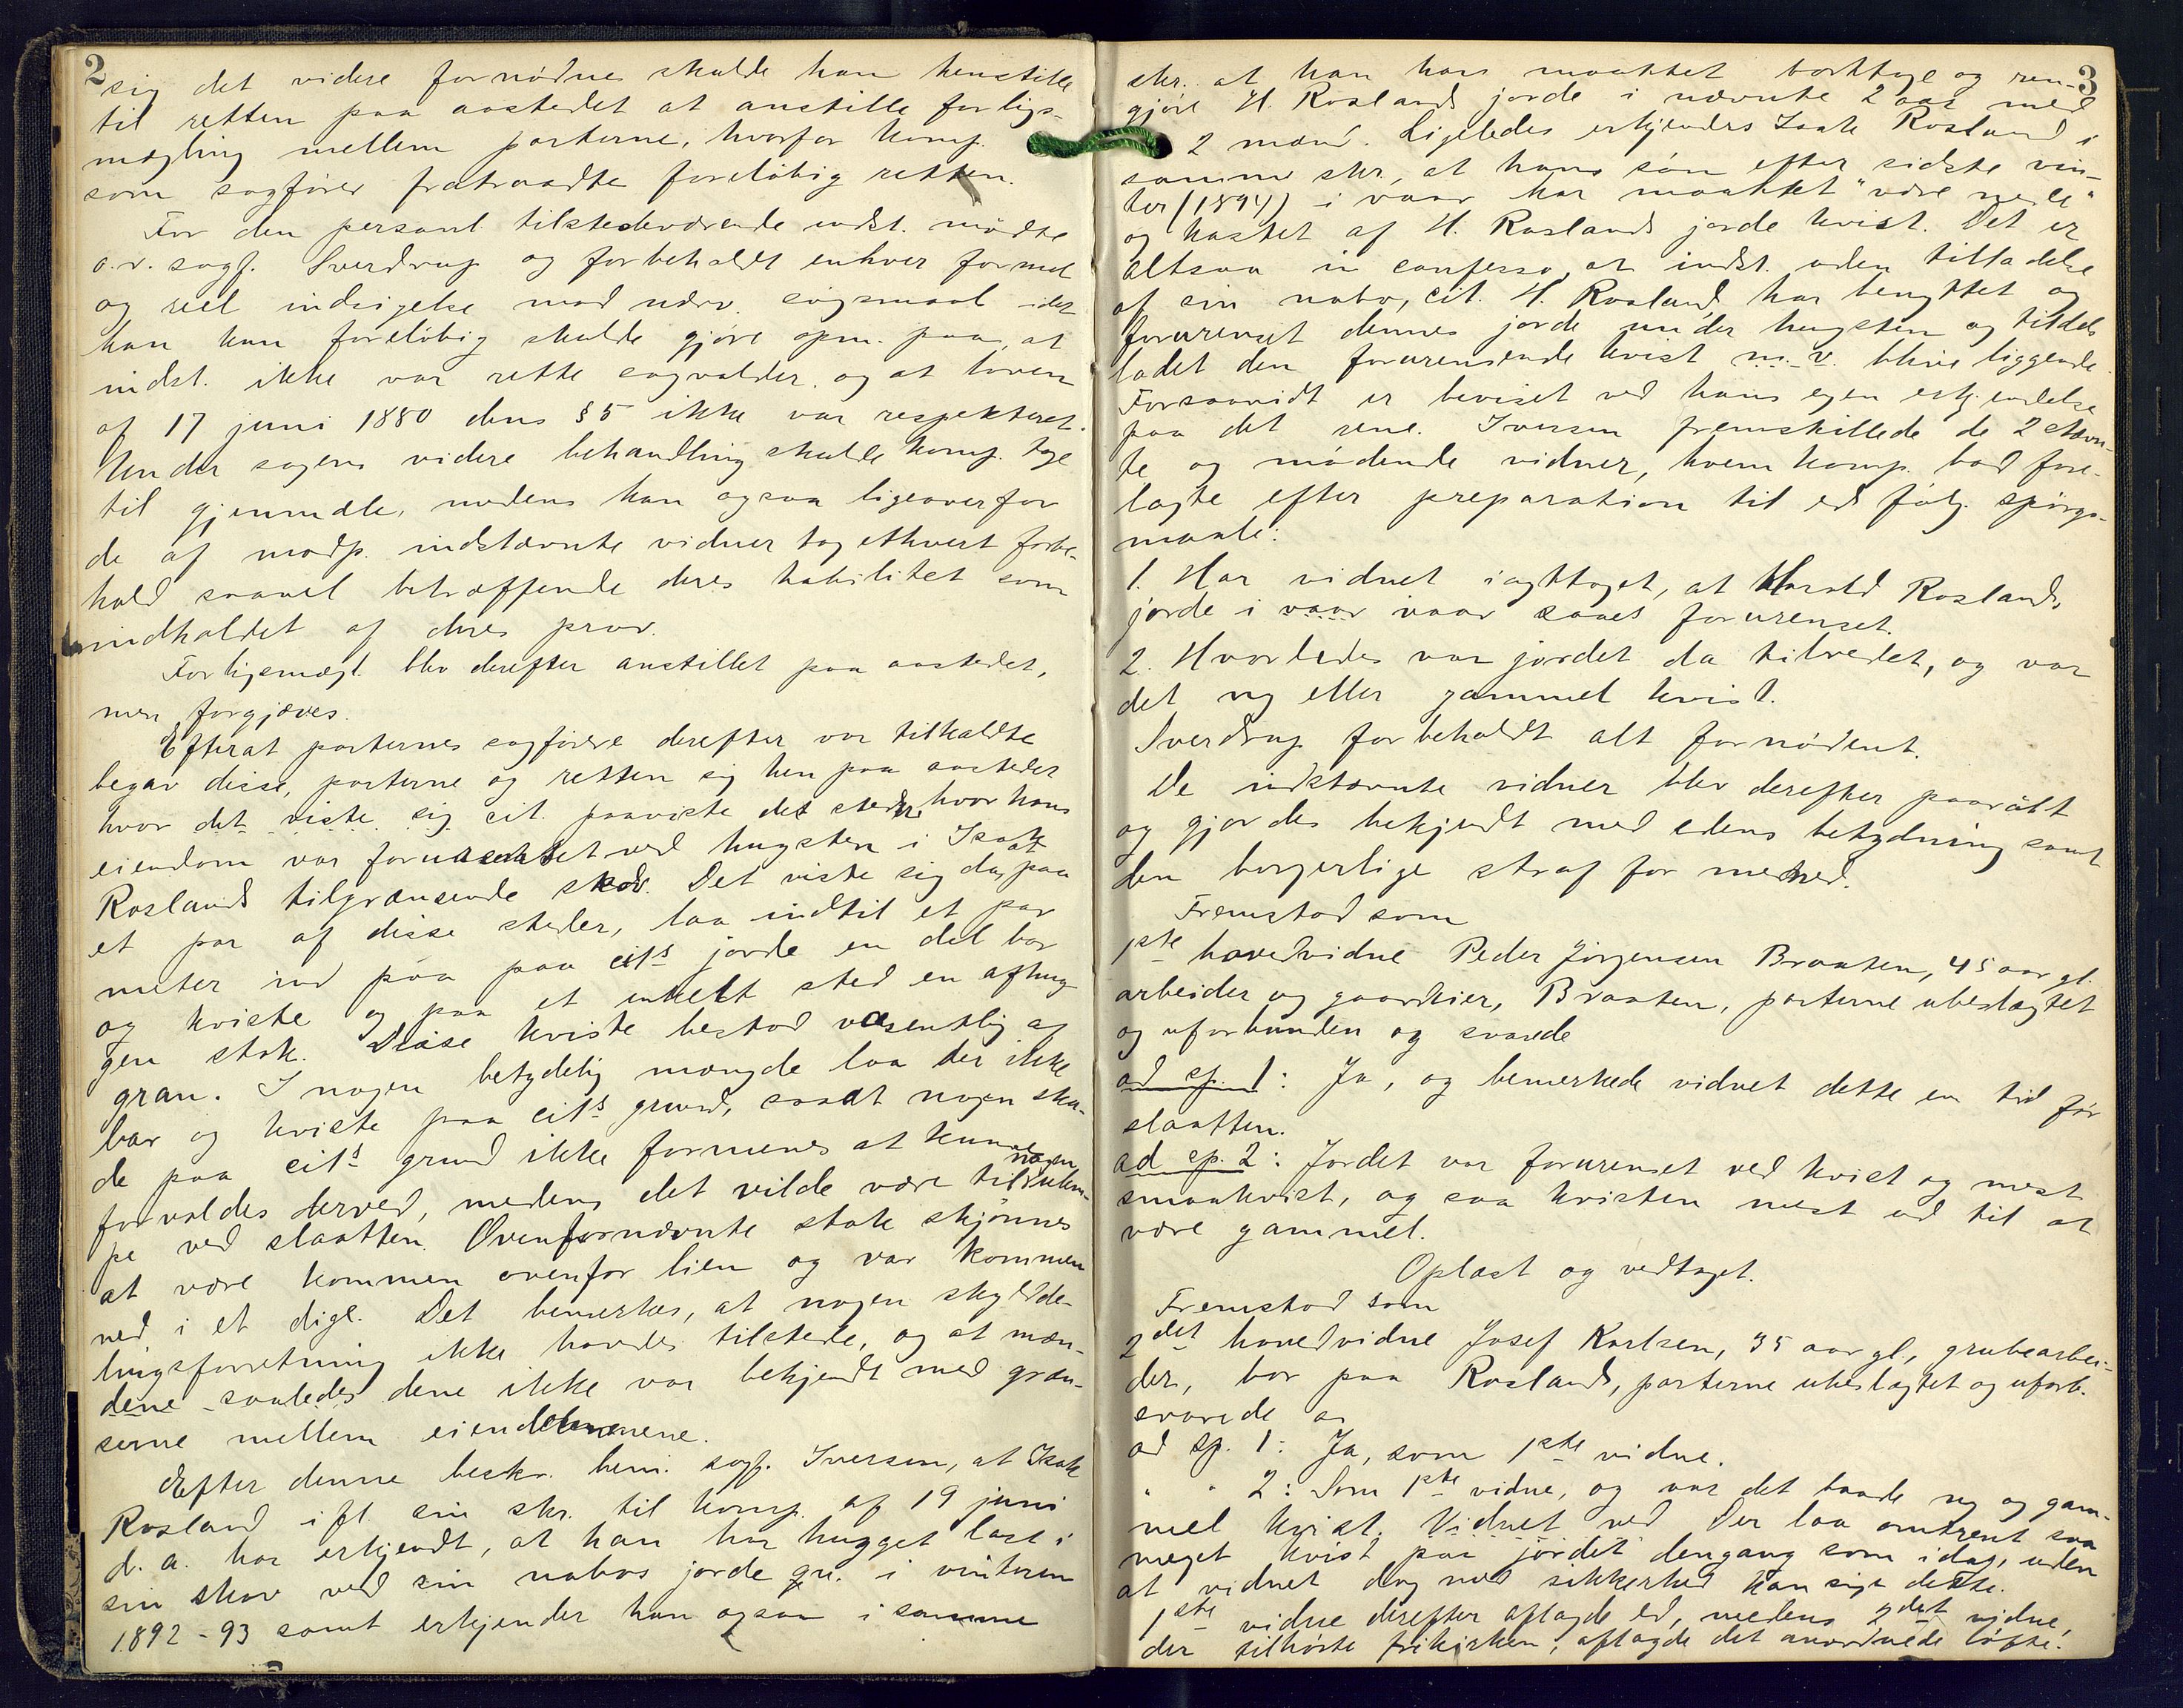 2
sig det videre fornødne skulde han henstille
til retten paa aastedet at anstille forligs-
mægling mellem parterne, hvorfor komp.
som sagfører fratraadte foreløbig retten.
For den personl. tilstedeværende indst. mødte
o.r. sagf. Sverdrup og forbeholdt enhver formel
og reel indsigelse mod nærv. søgsmaal idet
han kun foreløbig skulde gjøre opm. paa, at
indst. ikke var rette sagvolder og at loven
af 17 juni 1880 dens § 5 ikke var respekteret.
Under sagens videre behandling skulde komp. tage
til gjenmæle, medens han ogsaa ligeoverfor
de af modp. indstævnte vidner tog ethvert forbe-
hold saavel betræffende deres habilitet som
indholdet af deres prov.
Forligsmægl. blev derefter anstillet paa aastedet,
men forgjæves.
Efterat parternes sagførere derefter var tilkaldte
begav disse, parterne og retten sig hen paa aastedet
hvor det viste sig cit. paaviste de steder hvor hans
eiendom var forurenset ved hugsten i Isak
Roslands tilgrænsende skov. Det viste sig da, paa
et par af disse steder, laa indtil et par
meter ind paa paa cits jorde en del bar
og kviste og paa et enkelt sted en afhug-
gen stok. Disse kviste bestod væsentlig af
gran. I nogen betydelig mængde laa der ikke
bar og kviste paa cits grund, saaat nogen ska-
de paa cits grund ikke formenes at kunne
forvoldes derved, medens det vilde være til nogen ulem-
pe ved slaatten. Ovenfornævnte stok skjønnes
at være kommen ovenfor lien og var kommen
ned i et dige. Det bemærkes, at nogen skylddе-
lingsforretning ikke havdes tilstede, og at mæn-
dene saaledes dene ikke var bekjendt med græn-
serne mellem eiendommene.
Efter denne beskr. bem. sagf. Iversen, at Isak
Rosland ifl. sin skr. til komp. af 19 juni
d. a. har erkjendt, at han har hugget last i
sin skov ved sin nabos jorde gr. i vinteren
1892-93 samt erkjender han ogsaa i samme
3
skr. at han har maattet borttage og ren-
gjøre H. Roslands jorde i nævnte 2 aar med
2 mænd. Ligeledes erkjendes Isak Rosland i
samme skr, at hans søn efter sidste vin-
ter (1894) i vaar har maattet "være nede"
og kastet af H. Roslands jorde kvist. Det er
altsaa in confesso, at indst. uden tilladelse
af sin nabo, cit. H. Rosland, har benyttet og
forurenset dennes jorde under hugsten og tildels
ladet den forurensende kvist m. v. blive liggende.
Forsaavidt er beviset ved hans egen erkjendelse
paa det rene. Iversen fremstillede de 2 stævn-
te og mødende vidner, hvem komp. bad fore-
lagte efter preparation til ed følg. spørgs-
maale:
1. Har vidnet iagttaget, at Harald Roslands
jorde i vaar vaar saaes forurenset.
2. Hvorledes var jordet da tilredet, og var
det ny eller gammel kvist.
Sverdrup forbeholdt alt fornødent.
De indstævnte vidner blev derefter paaraabt
og gjordes bekjendt med edens betydning samt
den borgerlige straf for mened.
Fremstod som
1ste hovedvidne Peder Jørgensen Braaten, 45 aar gl.
arbeider og gaardeier, Braaten, parterne ubeslægtet
og uforbunden og svarede
ad sp. 1: Ja, og bemerkede vidnet dette en tid før
slaatten.
ad sp. 2: Jordet var forurenset ved kvist og mest
smaakvist, og saa kvisten mest ud til at
være gammel.
Oplæst og vedtaget.
Fremstod som
2det hovedvidne Josef Karlsen, 35 aar gl., grubearbei-
der, bor paa Rosland, parterne ubeslægtet og uforb.
svarede
ad sp. 1: Ja, som 1ste vidne.
" " 2: Som 1ste vidne, og var det baade ny og gam-
mel kvist. Vidnet ved Der laa omtrent saa
meget kvist paa jordet dengang som idag, uden
at vidnet dog med sikkerhed kan sige dette.
1ste vidne derefter aflagde ed, medens 2det vidne,
der tilhørte frikirken, aflagde det anordnede løfte.